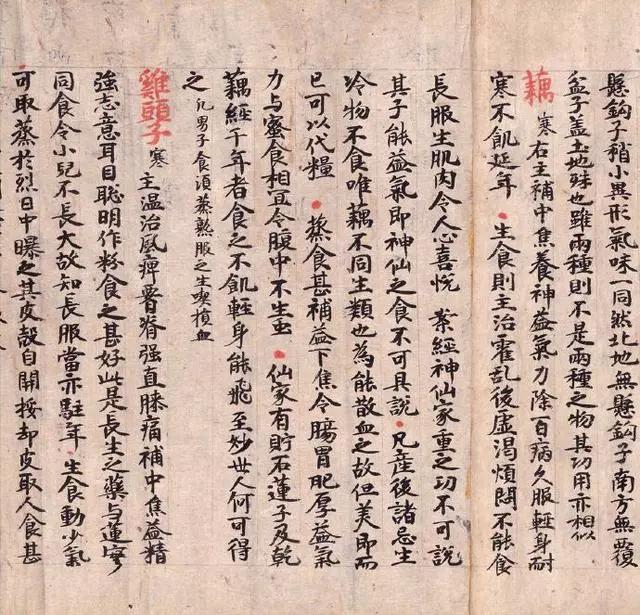 懸鈎子稍小異形氣味一同然北地無懸鈎子南方無覆
盆子蓋土地殊也雖兩種則不是兩種之物其功用亦相似
藕 寒 右主補中焦養神益氣力除百病久服輕身耐
寒不飢延年 生食則主治霍乱後虛渴煩悶不能食
長服生肌肉令人心喜悅 案經神仙家重之功不可說
其子能益氣即神仙之食不可具說 凡産後諸忌生
冷物不食唯藕不同生類也為能散血之故但美即而
已可以代糧 蒸食甚補益下焦令腸胃肥厚益氣
力与蜜食相宜令腹中不生虫 仙家有貯石蓮子及乾
藕經千年者食之不飢輕身能飛至妙世人何可得
之 凡男子食須蒸熟服之生喫損血
雞頭子 寒 主温治風痺𦝫脊强直膝痛補中焦益精
強志意耳目聡明作粉食之甚好此是長生之藥与蓮實
同食令小兒不長大故知長服當亦駐年 生食動少氣
可取蒸於烈日中曝之其皮殼自開挼却皮取人食甚